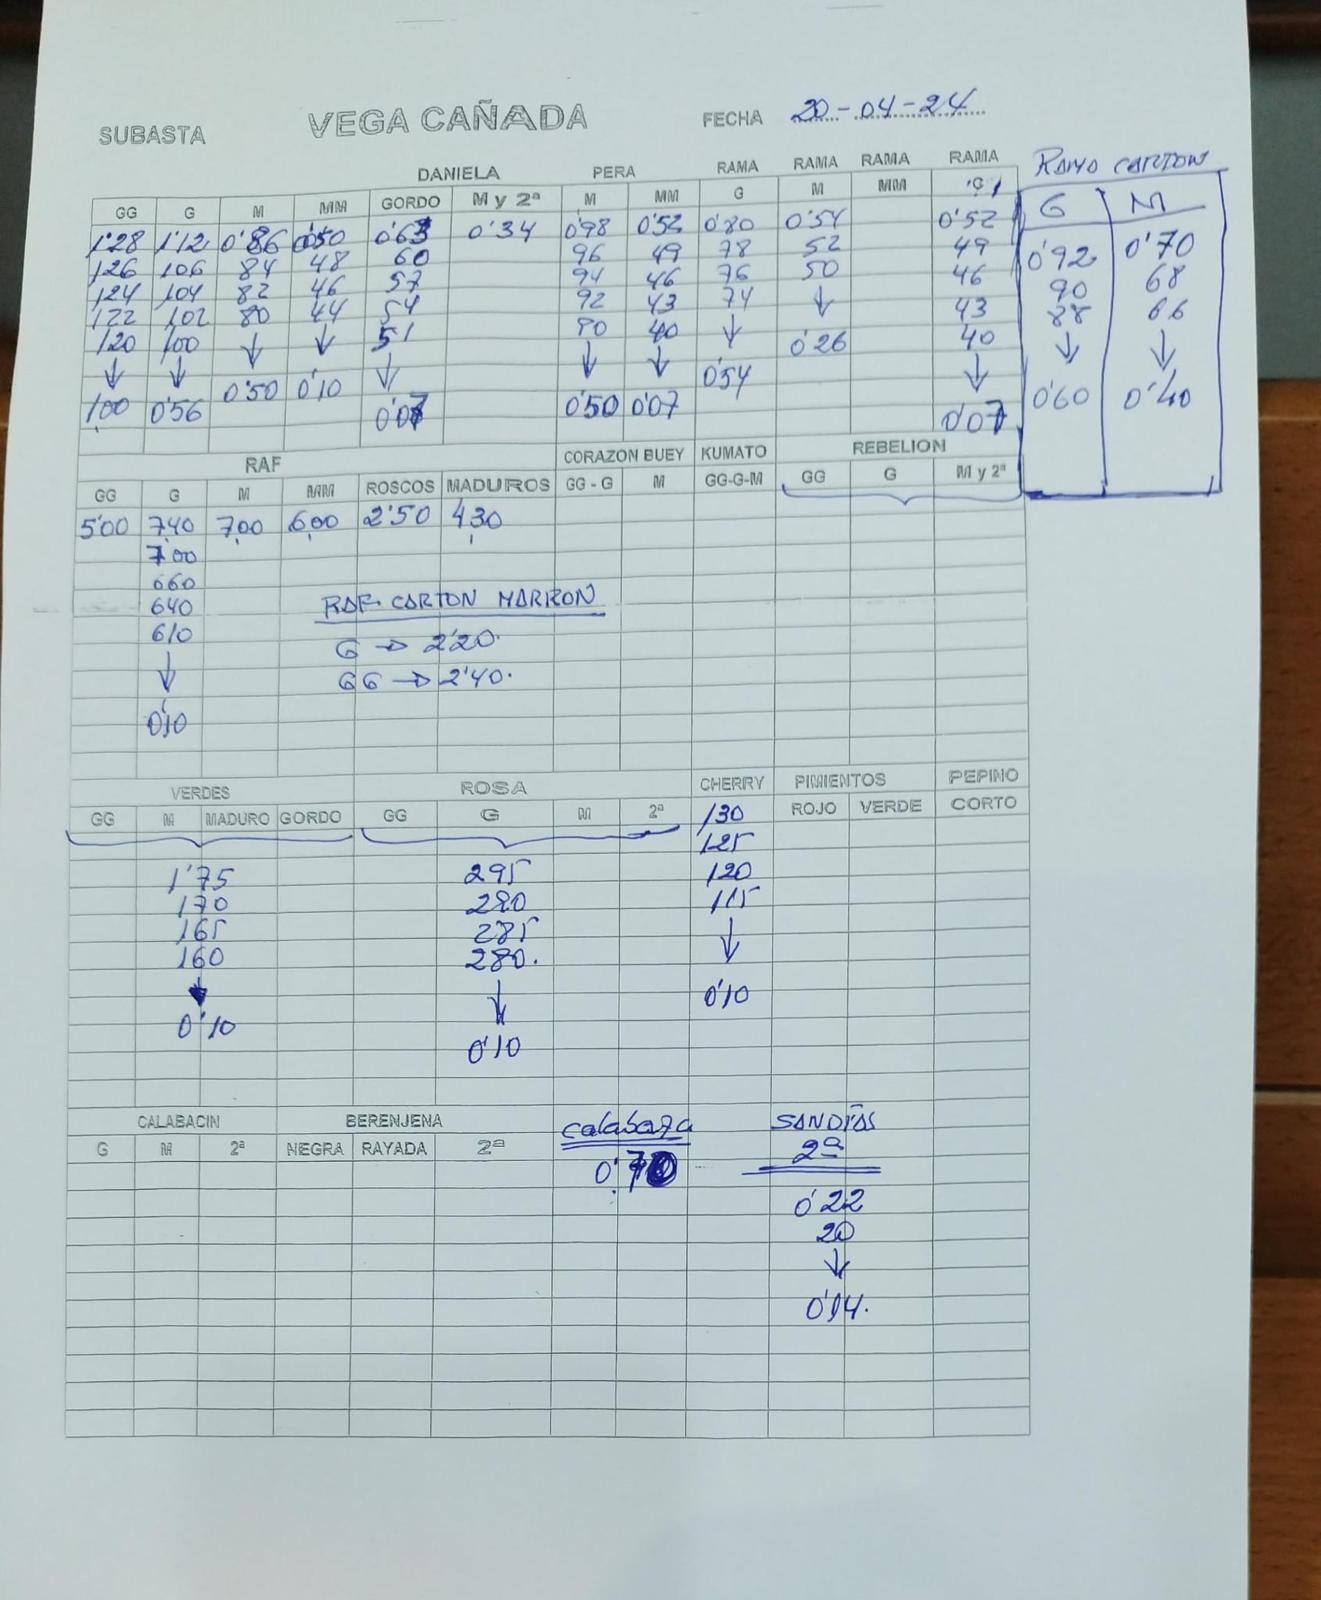 SUBASTA VEGA CAÑADA FECHA 20-04-24
DANIELA PERA RAMA RAMA RAMA RAMA RAMO CARTON
GG G M MM GORDO M y 2ª M MM G M MM G M
1'28 1'12 0'86 0'50 0'63 0'34 0'98 0'52 0'80 0'54 0'52
126 106 84 48 60 96 49 78 52 49 0'92 0'70
124 104 82 46 57 94 46 76 50 46 90 68
122 102 80 44 54 92 43 74 ↓ 43 88 66
120 100 ↓ ↓ 51 90 40 ↓ 0'26 40 ↓ ↓
↓ ↓ 0'50 0'10 ↓ ↓ ↓ 0'54 ↓ 0'60 0'40
100 0'56 0'07 0'50 0'07 0'07
RAF CORAZON BUEY KUMATO REBELION
GG G M MM ROSCOS MADUROS GG - G M GG-G-M GG G M y 2ª
5'00 7'40 7'00 6'00 2'50 4'30
7'00
660
640
610
↓
0'10
RAF CARTON MARRON
G → 2'20.
GG → 2'40.
VERDES ROSA CHERRY PIMIENTOS PEPINO
GG M MADURO GORDO GG G M 2ª ROJO VERDE CORTO
130
125
1'75 295 120
170 290 115
165 285 ↓
160 280.
↓ ↓ 0'10
0'10 0'10
CALABACIN BERENJENA calabaza SANDIAS
G M 2ª NEGRA RAYADA 2ª 2ª
0'70
0'22
20
↓
0'14.